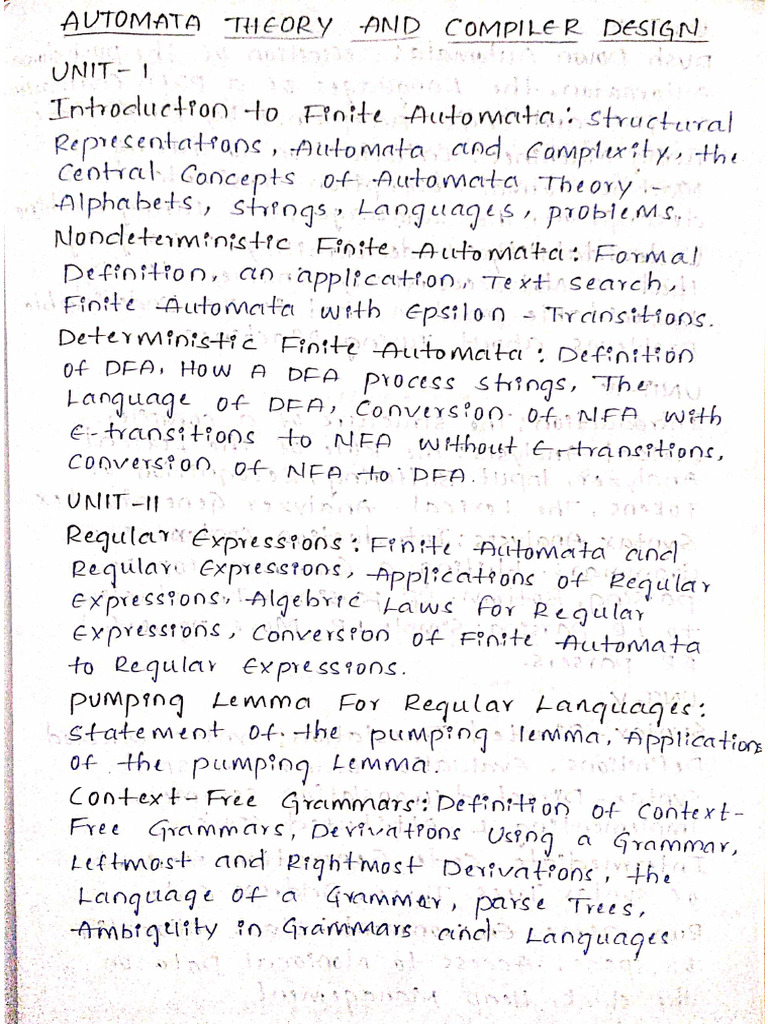 AUTOMATA THEORY AND COMPILER DESIGN
UNIT-I
Introduction to Finite Automata: structural
Representations, Automata and Complexity, the
Central Concepts of Automata Theory -
Alphabets, strings, Languages, problems.
Nondeterministic Finite Automata: Formal
Definition, an application, Text search,
Finite Automata with Epsilon - Transitions.
Deterministic Finite Automata: Definition
of DFA, How A DFA process strings, The
Language of DFA, Conversion of NFA with
ε-transitions to NFA without ε-transitions,
Conversion of NFA to DFA.
UNIT-II
Regular Expressions: Finite Automata and
Regular Expressions, Applications of Regular
Expressions, Algebric Laws for Regular
Expressions, Conversion of Finite Automata
to Regular Expressions.
pumping Lemma For Regular Languages:
statement of the pumping lemma, Applications
of the pumping Lemma.
Context-Free Grammars: Definition of Context-
Free Grammars, Derivations Using a Grammar,
Leftmost and Rightmost Derivations, the
Language of a Grammer, parse Trees,
Ambiguity in Grammars and Languages